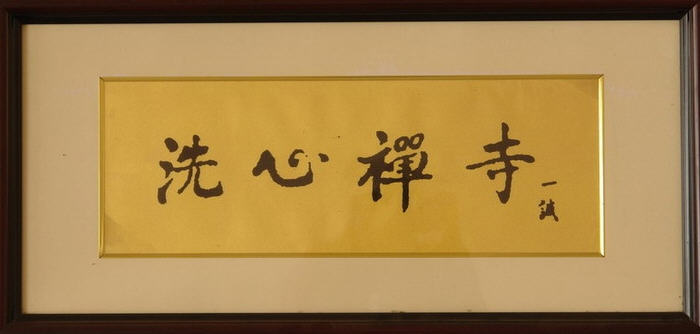 洗心禪寺
一誠